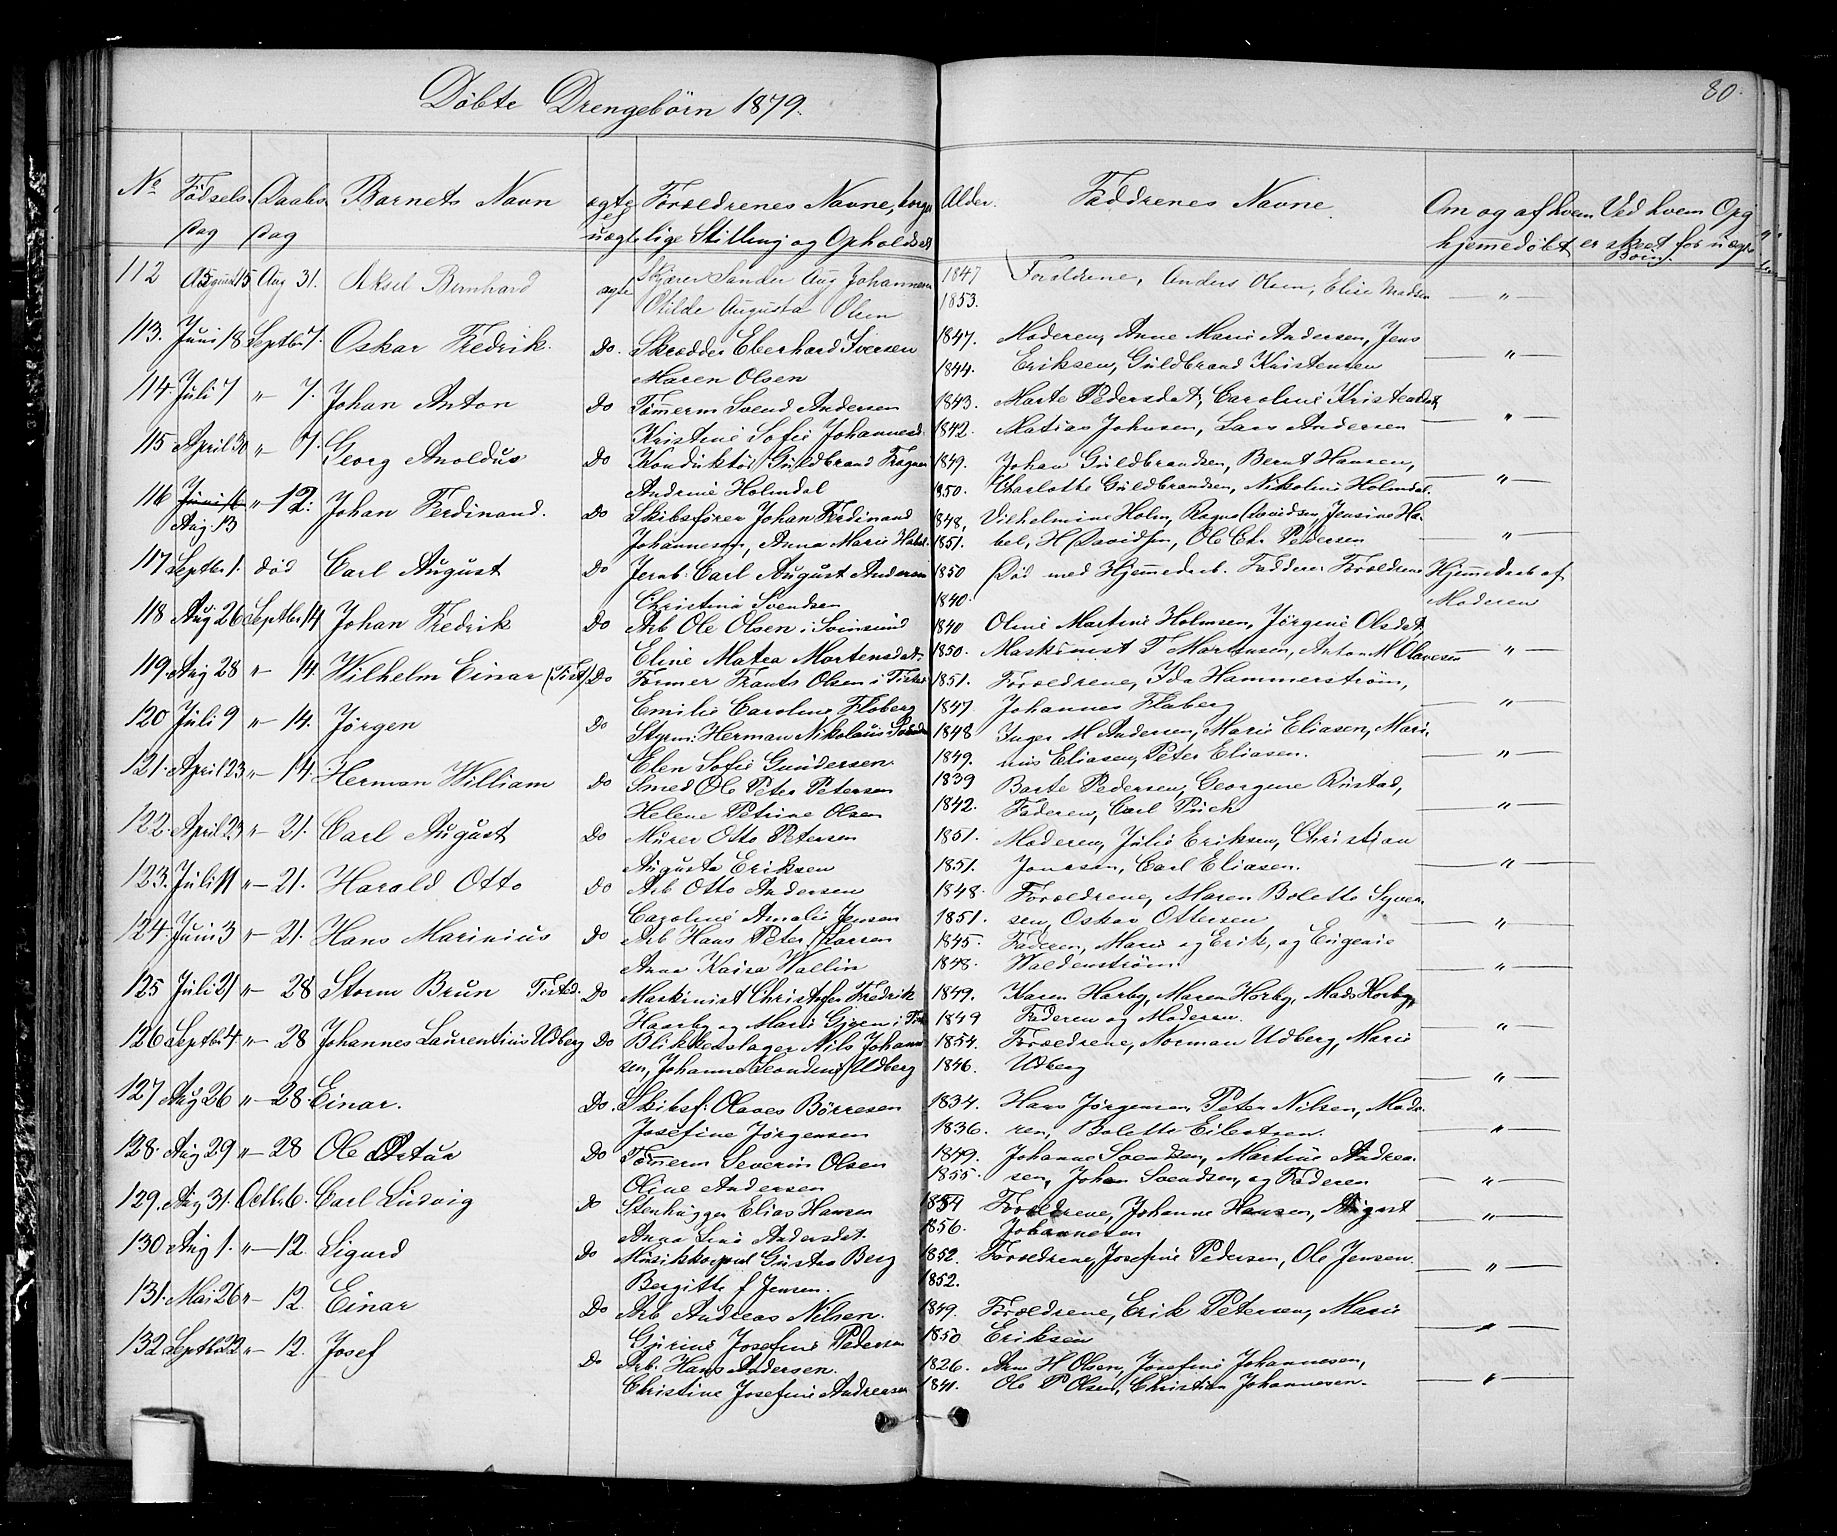 80.
Døbte Drengebörn 1879.
No Fødsels Daabs Barnets Navn ægte Foreldrenes Navne, borger Alder. Faddrenes Navne Om og af hvem Ved hvem Opg
dag dag uægte lige Stilling og Opholdsst hjemmedøbt er skeet for uægte Börn
112 August 15 Aug 31. Aksel Bernhard ægte Skjærer Sander Aug Johannesen 1847 Foreldrene, Anders Olsen, Elise Madsen — " —
Otilde Augusta Olsen 1853.
113. Juni 18 Septbr 7. Oskar Fredrik. Do. Skrædder Eberhard Iversen 1847. Moderen, Anne Marie Andersen, Jens
Maren Olsen 1844. Eriksen, Guldbrand Kristensen — " —
114. Juli 7 " 7. Johan Anton Do Tömerm Svend Andersen 1843. Marte Pedersdat, Caroline Kristensdat,
Kristine Sofie Johannesd. 1842. Matias Johnsen, Lars Andersen — " —
115 April 30 " 7. Georg Anoldus Do Konduktör Guldbrand Fragner 1849. Johan Guldbrandsen, Bernt Hansen,
Andrine Holmdal 1850. Charlotte Guldbrandsen, Nikoline Holmdal. — " —
116 Juni 16 " 12. Johan Ferdinand. Do Skibsfører Johan Ferdinand 1848, Vilhelmine Holm, Ragna Davidsen, Jensine Ha-
Aug. 13 Johannesen, Anna Marie Habel 1851. bel, H Davidsen, Ole Chr Pedersen — " —
117 Septbr 1. død Carl August Do Jernb. Carl August Andersen 1850 Død med Hjemmedaab. Faddere Foreldrene Hjemmedaab af
Christina Svendsen 1840. Moderen
118 Aug 26 Septbr 14 Johan Fredrik Do Arb Ole Olsen i Svinsund 1840 Oline Martine Holmsen, Jørgine Olsdat,
Eline Matea Mortensdat. 1850. Maskinist T Mortensen, Anton M Olavesen — " —
119. Aug 28 " 14. Wilhelm Einar (Tist) Do Former Frants Olsen i Tistedal 1851. Foreldrene, Ida Hammerstrøm,
Emilie Caroline Floberg 1847 Johannes Floberg — " —
120 Juli 9 " 14. Jörgen Do Styrm: Herman Nikolaus Svendsen 1848 Inger M Andersen, Marie Eliasen, Mari-
Elen Sofie Gundersen 1849. nus Eliasen, Peter Eliasen. — " —
121. April 23 " 14 Herman William Do Smed Ole Peter Petersen 1839 Barte Pedersen, Georgine Rustad,
Helene Petrine Olsen 1842. Faderen, Carl Puck — " —
122. April 23 " 21. Carl August Do Murer Otto Petersen 1851. Moderen, Julie Eriksen, Christian
Augusta Eriksen 1851. Jonasen, Carl Eliasen. — " —
123. Juli 11 " 21. Harald Otto Do Arb Otto Andersen 1848. Foreldrene, Maren Bolette Syver-
Caroline Amalie Jensen 1851. sen, Oskar Ottersen — " —
124. Juni 3 " 21. Hans Marinius Do Arb Hans Peter Larsen 1845. Faderen, Marie og Erik, og Eugenie
Anna Kaisa Wallin 1848. Waldenström. — " —
125 Juli 21 " 28 Storm Brun Tistd. Do Maskinist Christofer Fredrik 1849. Karen Harby, Maren Horby, Mads Horby,
Haarby og Marie Gjeen i Tist 1849 Faderen og Moderen. — " —
126 Septbr 4 " 28 Johannes Laurentius Udberg Do Blikkenslager Nils Johann 1854. Foreldrene, Norman Udberg, Marie
sen, Johanne Leondine Udberg 1846. Udberg — " —
127 Aug 26 " 28. Einar. Do. Skibsf: Olaves Börresen 1834. Hans Jörgensen, Peter Nilsen, Mads-
Josefine Jörgensen 1836. ren, Bolette Eilertsen. — " —
128. Aug 29 " 28 Ole Artur Do Tömerm Severin Olsen 1849. Johanne Svendsen, Martine Andrea-
Oline Andersen 1855. sen, Johan Svendsen, og Faderen — " —
129. Aug 31. Octbr 6. Carl Ludvig Do Stenhugger Elias Hansen 1854 Foreldrene, Johanne Hansen, August
Anna Lene Andersdat. 1856. Johannesen — " —
130 Aug 1. " 12. Sigurd Do Musikkorporal Gustav Berg 1852. Foreldrene, Josefine Pedersen, Ole Jensen.
Bergitte f Jensen. 1852. — " —
131. Mai 26 " 12. Einar Do Arb Andreas Nilsen. 1849. Foreldrene, Erik Petersen, Marie
Gurine Josefine Pedersen 1850 Eriksen — " —
132 Septbr 22 " 12. Josef Do Arb. Hans Andersen. 1826. Arne H Olsen, Josefine Johannesen,
Christine Josefine Andreasen 1841. Ole P Olsen, Christian Johannesen. — " —